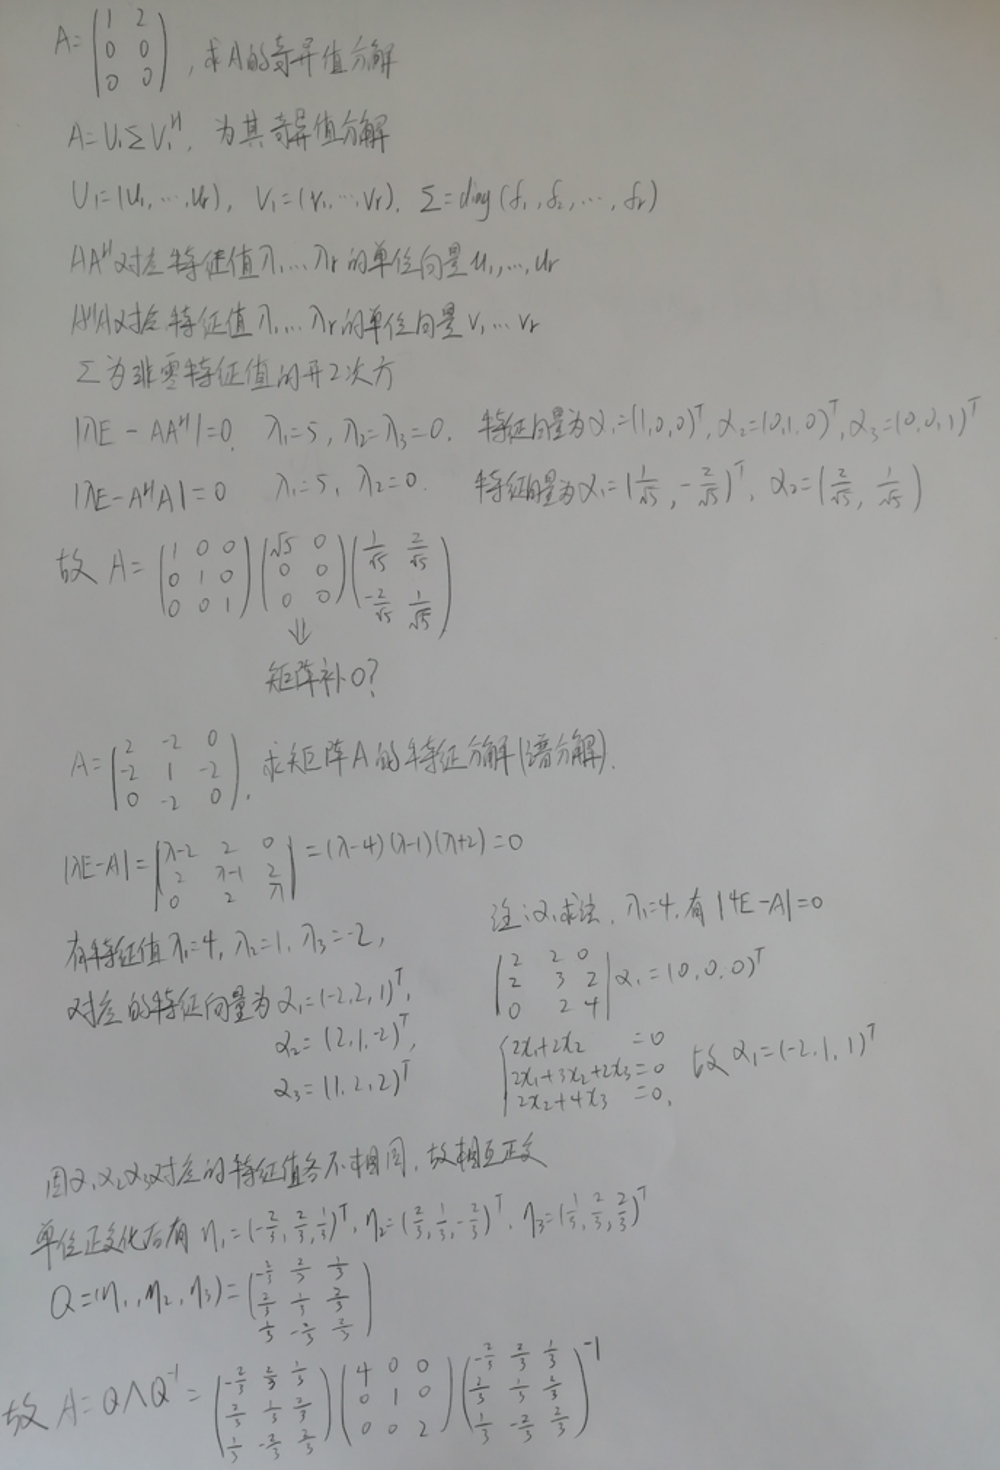 A=(1 2; 0 0; 0 0), 求A的奇异值分解
A=U₁ΣV₁ᴴ, 为其奇异值分解
U₁=(u₁,…,uᵣ), V₁=(v₁,…,vᵣ), Σ=diag(δ₁,δ₂,…,δᵣ)
AAᴴ对应特征值λ₁…λᵣ的单位向量u₁,…,uᵣ
AᴴA对应特征值λ₁…λᵣ的单位向量v₁…vᵣ
Σ为非零特征值的开2次方
|λE-AAᴴ|=0, λ₁=5, λ₂=λ₃=0. 特征向量为α₁=(1,0,0)ᵀ, α₂=(0,1,0)ᵀ, α₃=(0,0,1)ᵀ
|λE-AᴴA|=0 λ₁=5, λ₂=0. 特征向量为α₁=(1/√5, -2/√5)ᵀ, α₂=(2/√5, 1/√5)
故 A=(1 0 0; 0 1 0; 0 0 1)(√5 0; 0 0; 0 0)(1/√5 2/√5; -2/√5 1/√5)
⇓
矩阵补0?
A=(2 -2 0; -2 1 -2; 0 -2 0), 求矩阵A的特征分解(谱分解).
|λE-A|=|λ-2 2 0; 2 λ-1 2; 0 2 λ|=(λ-4)(λ-1)(λ+2)=0
有特征值λ₁=4, λ₂=1, λ₃=-2,
对应的特征向量为α₁=(-2,2,1)ᵀ,
α₂=(2,1,-2)ᵀ,
α₃=(1,2,2)ᵀ
注:α₁求法, λ₁=4, 有|4E-A|=0
|2 2 0; 2 3 2; 0 2 4|α₁=(0,0,0)ᵀ
{2x₁+2x₂=0
2x₁+3x₂+2x₃=0
2x₂+4x₃=0, 故α₁=(-2,1,1)ᵀ
因α₁α₂α₃对应的特征值各不相同, 故相互正交
单位正交化后有η₁=(-2/3,2/3,1/3)ᵀ, η₂=(2/3,1/3,-2/3)ᵀ, η₃=(1/3,2/3,2/3)ᵀ
Q=(η₁,η₂,η₃)=(-2/3 2/3 1/3; 2/3 1/3 2/3; 1/3 -2/3 2/3)
故 A=QΛQ⁻¹=(-2/3 2/3 1/3; 2/3 1/3 2/3; 1/3 -2/3 2/3)(4 0 0; 0 1 0; 0 0 2)(-2/3 2/3 1/3; 2/3 1/3 2/3; 1/3 -2/3 2/3)⁻¹